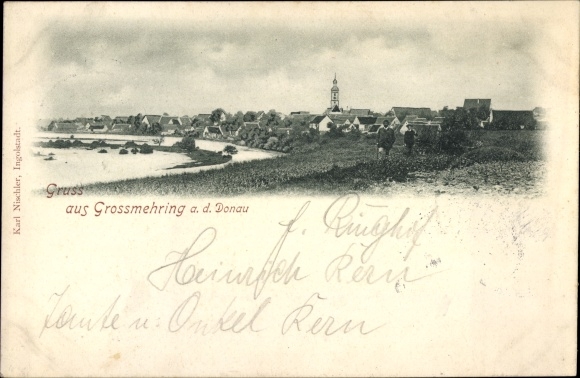 Karl Nischler, Ingolstadt.
Gruss
aus Grossmehring a. d. Donau
f. Ringhof
Heinrich Kern
Tante u. Onkel Kern